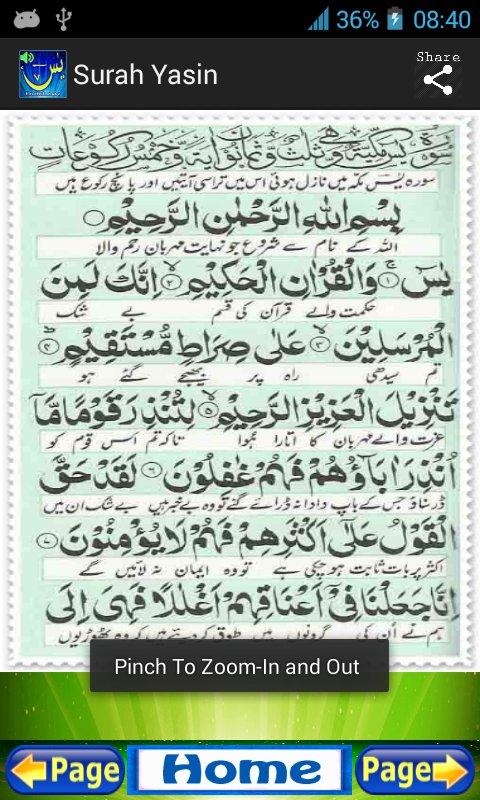 36% 08:40
Surah Yasin
Share
سورة يس مكية وهي ثلث وثمانون اية وخمس ركوعات
سورہ یٰسٓ مکہ میں نازل ہوئی اس میں تراسی آیتیں اور پانچ رکوع ہیں
بِسْمِ اللهِ الرَّحْمٰنِ الرَّحِيْمِ
اللہ کے نام سے شروع جو نہایت مہربان رحم والا
يٰسٓ ۝١ وَالْقُرْاٰنِ الْحَكِيْمِ ۝٢ اِنَّكَ لَمِنَ
حکمت والے قرآن کی قسم بے شک
الْمُرْسَلِيْنَ ۝٣ عَلٰى صِرَاطٍ مُّسْتَقِيْمٍ ۝٤
تم سیدھی راہ پر بھیجے گئے ہو
تَنْزِيْلَ الْعَزِيْزِ الرَّحِيْمِ ۝٥ لِتُنْذِرَ قَوْمًا مَّآ
عزت والے مہربان کا اتارا ہوا تاکہ تم اس قوم کو
اُنْذِرَ اٰبَآؤُهُمْ فَهُمْ غٰفِلُوْنَ ۝٦ لَقَدْ حَقَّ
ڈر سناؤ جس کے باپ دادا نہ ڈرائے گئے تو وہ بے خبر ہیں بے شک ان میں
الْقَوْلُ عَلٰٓى اَكْثَرِهِمْ فَهُمْ لَا يُؤْمِنُوْنَ ۝٧
اکثر پر بات ثابت ہو چکی ہے تو وہ ایمان نہ لائیں گے
اِنَّا جَعَلْنَا فِيْٓ اَعْنَاقِهِمْ اَغْلٰلًا فَهِيَ اِلَى
ہم نے ان کی گردنوں میں طوق کر دیئے ہیں کہ وہ ٹھوڑیوں
Pinch To Zoom-In and Out
Page Home Page